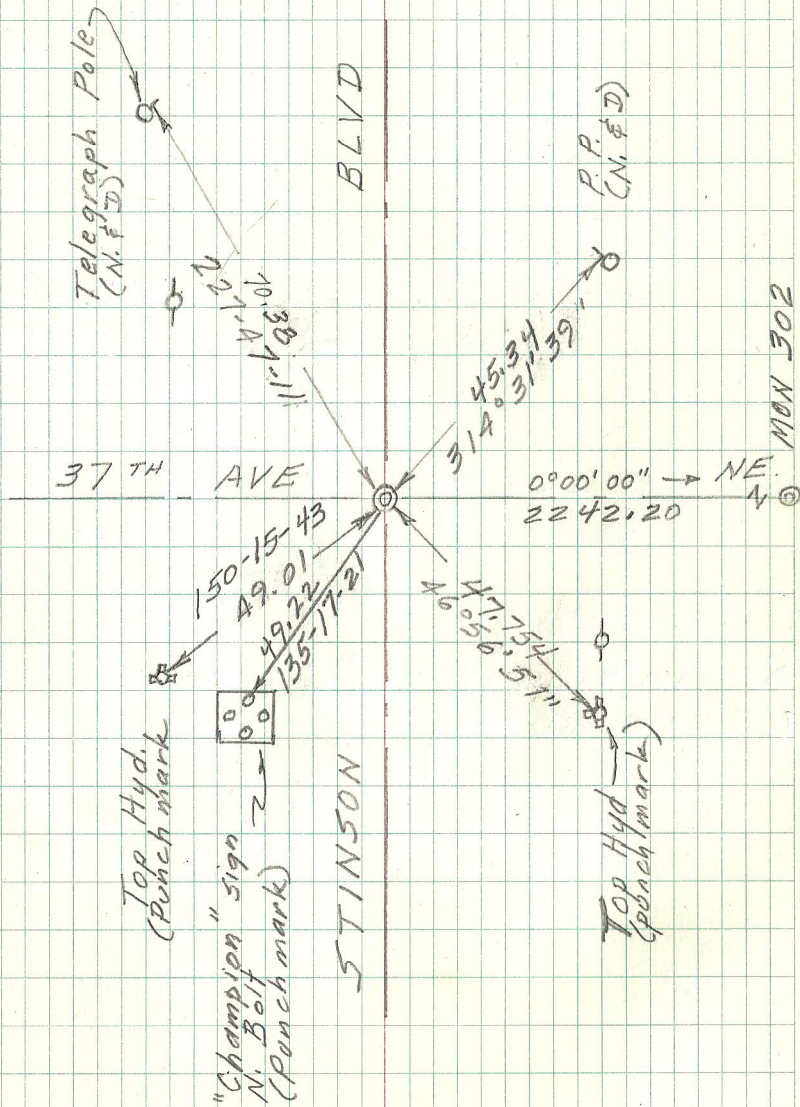 Telegraph Pole
(N. & D)
BLVD
P.P.
(N. & D)
45.34
314° 31' 39"
MON 302
37 TH AVE NE.
0°00'00"
2242.20
N
150-15-43
49.01
49.22
135-17-21
47.754
46° 56' 51"
Top Hyd.
(Punch mark
"Champion" sign
N. Bolt
(Punch mark)
STINSON
Top Hyd
(punch mark)